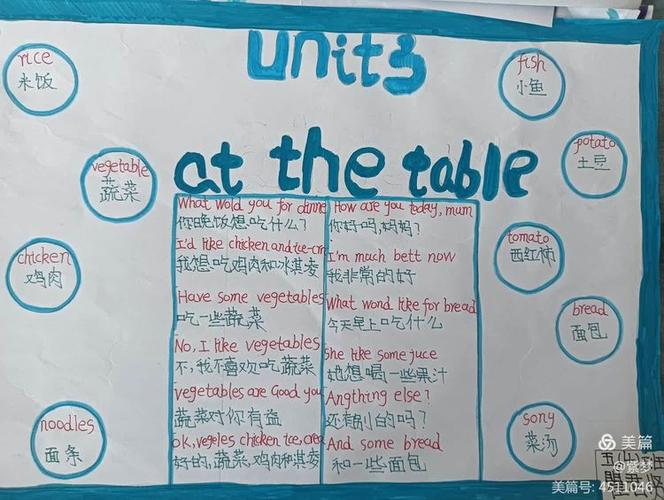 unit3
at the table
rice
米饭
vegetable
蔬菜
chicken
鸡肉
noodles
面条
What wold you for dinne
你晚饭想吃什么?
I'd like chicken and ice-cre
我想吃鸡肉和冰淇凌
Have some vegetables
吃一些蔬菜
No, I like vegetables
不,我不喜欢吃蔬菜
vegetables are Good you
蔬菜对你有益
ok, vegeles chicken ice, crea
好的,蔬菜,鸡肉和淇凌
How are you today, mum
你好吗,妈妈?
I'm much bett now
我非常的好
What wond like for bread
今天早上吃什么
She like some juce
她想喝一些果汁
Angthing else?
还有别的吗?
And some bread
和一些面包
fish
小鱼
potato
土豆
tomato
西红柿
bread
面包
sony
菜汤
美篇
@紫梦
美篇号: 4511046